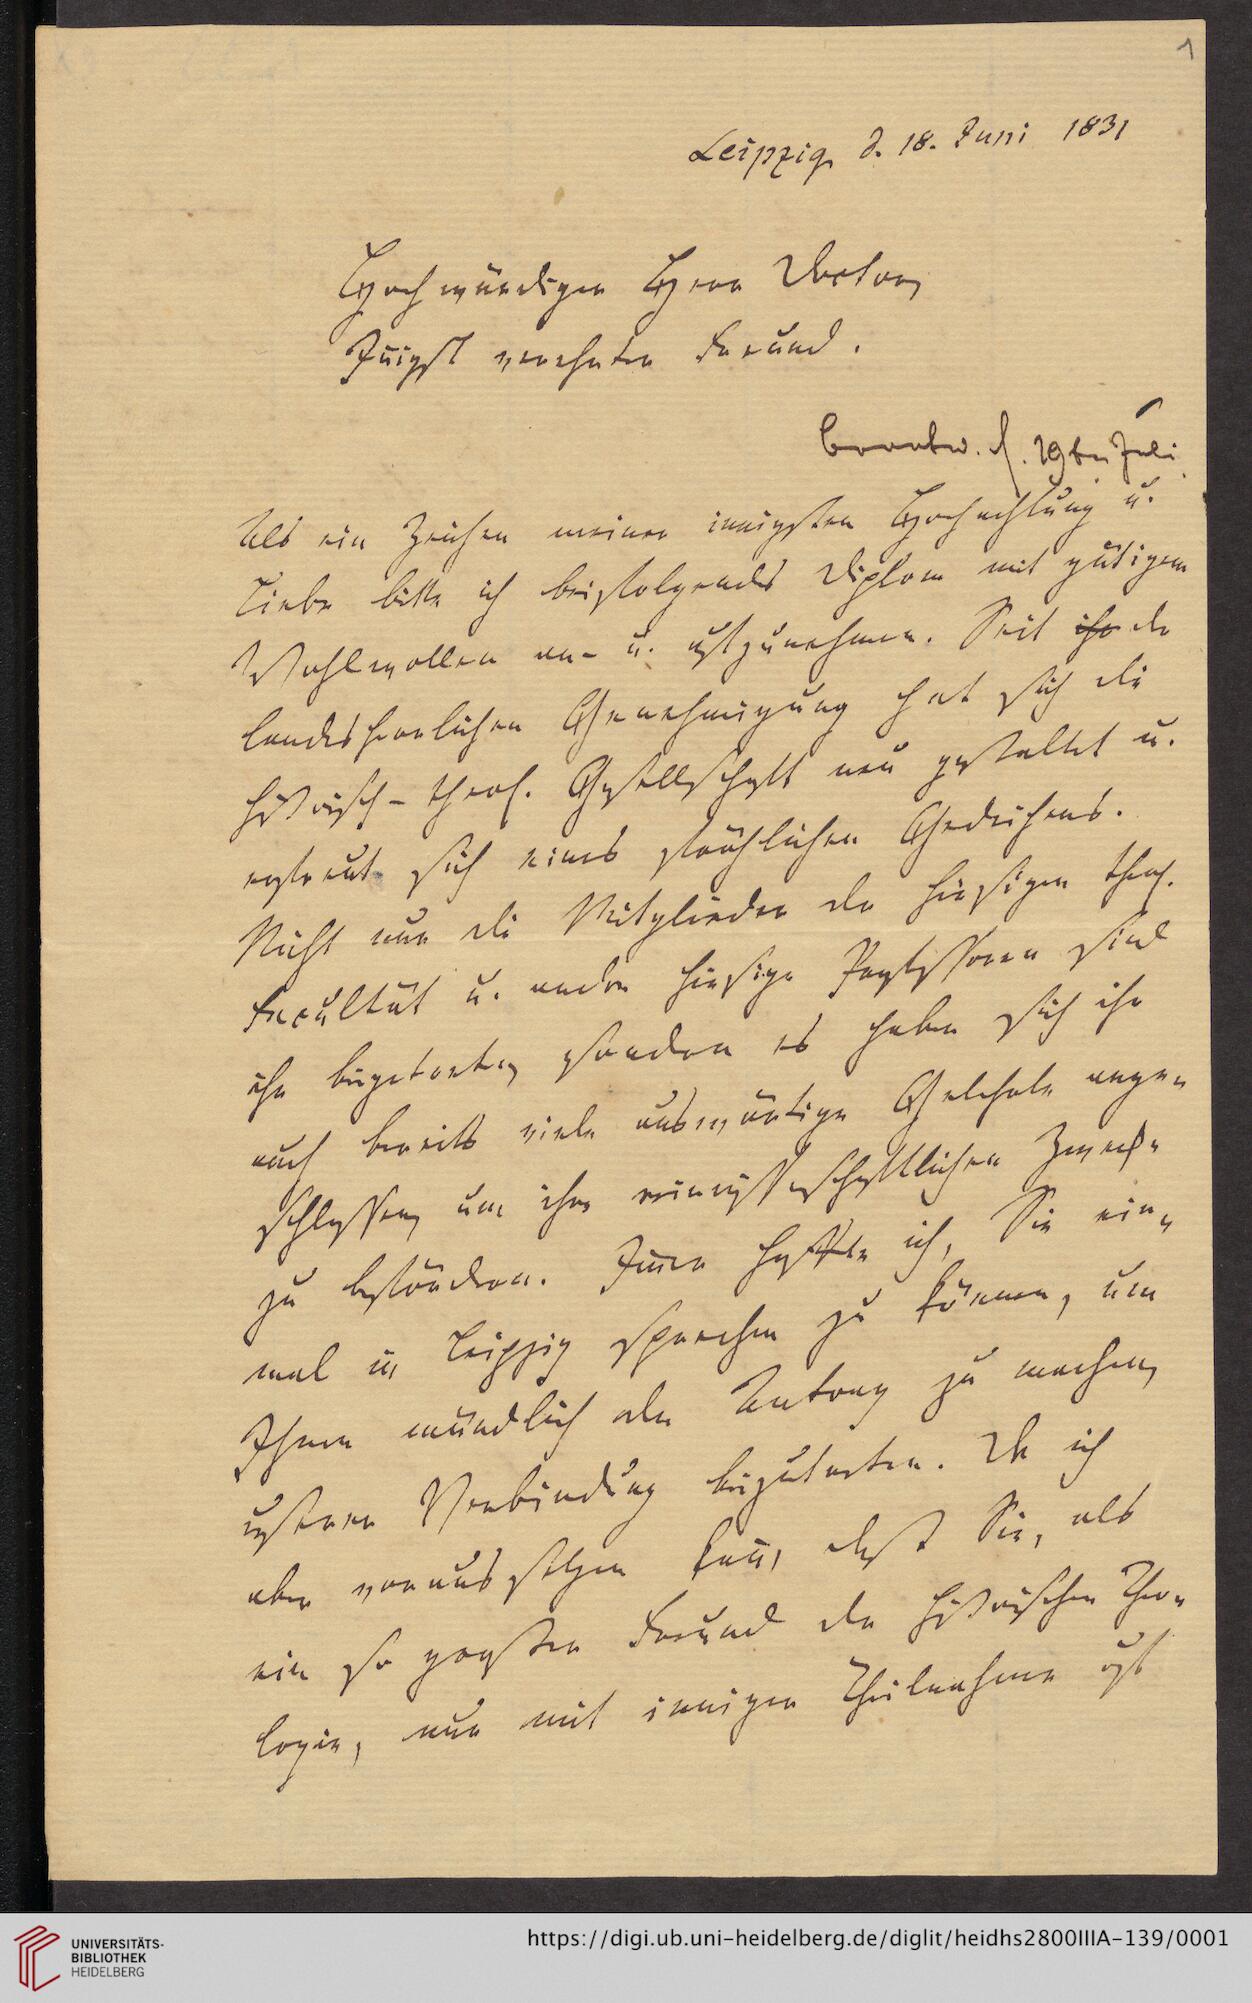 1
Leipzig, d. 18. Juni 1831
Hochwürdiger Herr Doctor,
Innigst verehrter Freund.
beantw. d. 29ten Juli
Als ein Zeichen meiner innigsten Hochachtung u.
Liebe bitte ich beifolgendes Diplom mit gütigem
Wohlwollen an- u. aufzunehmen. Seit ihr der
landesherrlichen Genehmigung hat sich die
historisch-theol. Gesellschaft neu gestaltet u.
erfreut sich eines fröhlichen Gedeihens.
Nicht nur die Mitglieder der hiesigen theol.
Facultät u. andre hiesige Professoren sind
ihr beigetreten, sondern es haben sich ihr
auch bereits viele auswärtige Gelehrte ange-
schlossen, um ihre reinwissenschaftlichen Zwecke
zu befördern. Immer hoffte ich, Sie ein-
mal in Leipzig sprechen zu können, um
Ihnen mündlich den Antrag zu machen,
unserer Verbindung beizutreten. Da ich
aber voraussetzen kann, daß Sie, als
ein so großer Freund der historischen Theo-
logie, nur mit inniger Theilnahme auf
UNIVERSITÄTS-
BIBLIOTHEK
HEIDELBERG
https://digi.ub.uni-heidelberg.de/diglit/heidhs2800IIIA-139/0001